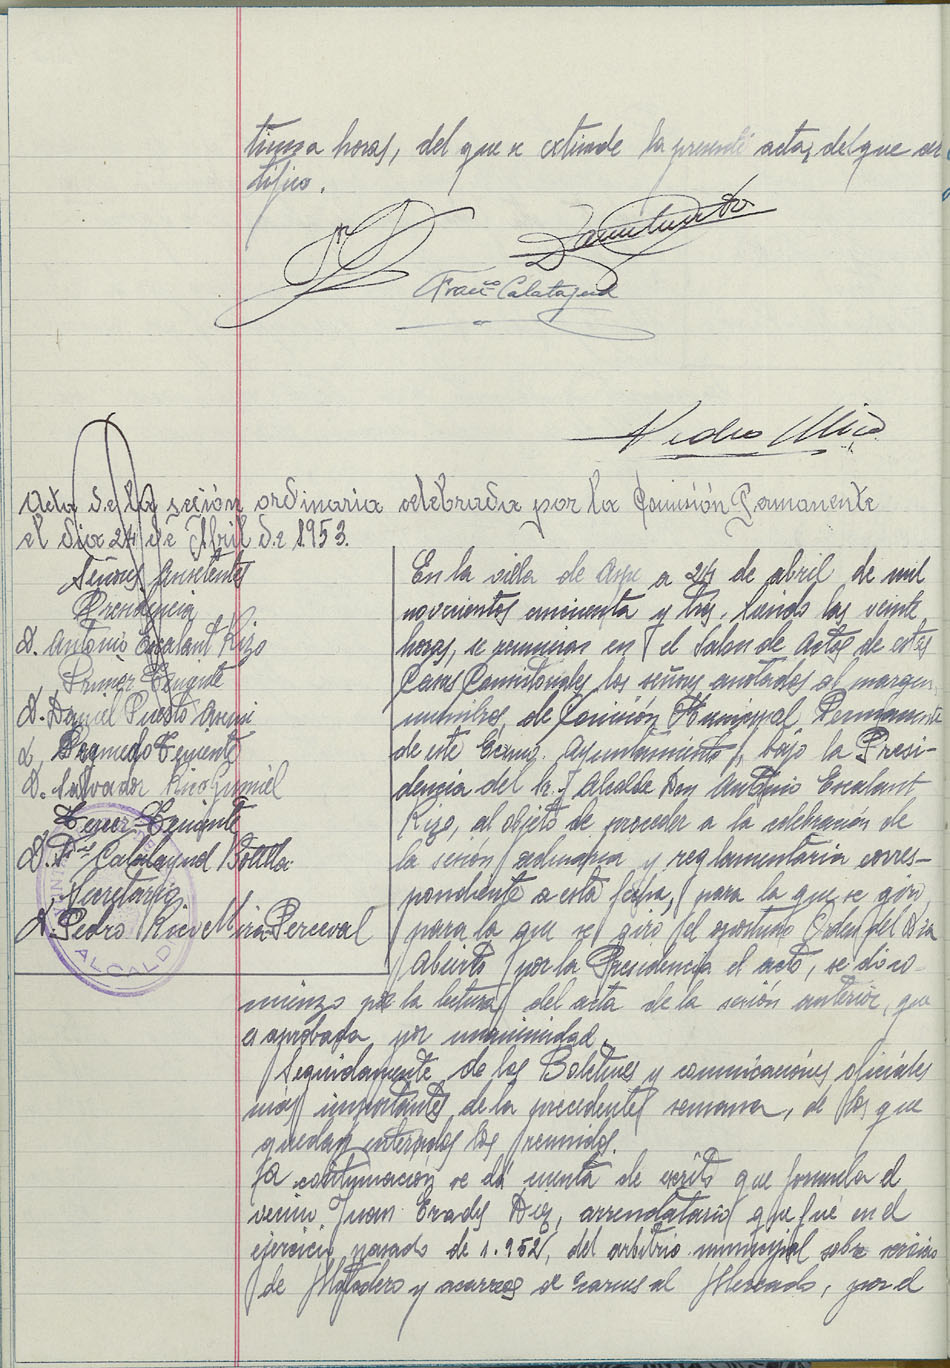 horas, del que se extiende la presente acta, del que cer
tifico.
Fran.co Calatayud
Pedro Micó
Acta de la sesión ordinaria celebrada por la Comisión Permanente
el dia 24 de Abril de 1953.
Señores Asistentes
Presidencia
D. Antonio Escalant Rizo
Primer Teniente
D. Daniel Puesto Asensi
Segundo Teniente
D. Salvador Rico Gumiel
Tercer Teniente
D. Fco Calatayud Botella
Secretario
D. Pedro Rico Mira Perceval
ALCALDIA
En la villa de Aspe a 24 de abril de mil
novecientos cincuenta y tres, siendo las veinte
horas, se reunieron en el Salon de Actos de estas
Casas Consistoriales los señores anotados al margen,
miembros de Comisión Municipal Permanente
de este Excmo. Ayuntamiento, bajo la Presi-
dencia del Sr. Alcalde Don Antonio Escalant
Rizo, al objeto de proceder a la celebración de
la sesión ordinaria y reglamentaria corres-
pondiente a esta fecha, para la que se giró,
para la que se giró el oportuno Orden del Dia
Abierto por la Presidencia el acto, se dió co-
mienzo por la lectura del acta de la sesión anterior, que
es aprobada por unanimidad.
Seguidamente de los Boletines y comunicaciones oficiales
más importantes de la precedente semana, de los que
quedan enterados los reunidos.
A continuacion se dá cuenta de escrito que formula el
vecino Juan Erades Diez, arrendatario que fué en el
ejercicio pasado de 1.952, del arbitrio municipal sobre servicios
de Matadero y acarreos de carnes al Mercado, por el